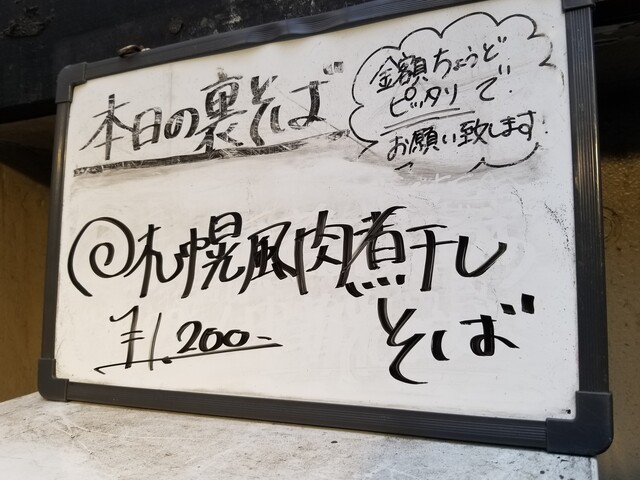 本日の裏そば
金額ちょうど
ピッタリで!
お願い致します!
@札幌風肉煮干し
そば
¥1.200-